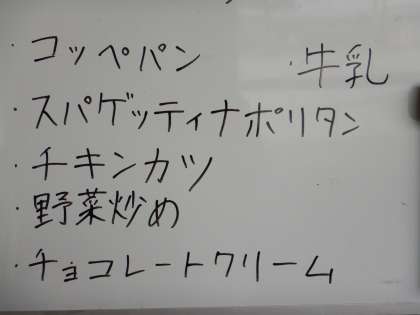 ・コッペパン ・牛乳
・スパゲッティナポリタン
・チキンカツ
・野菜炒め
・チョコレートクリーム